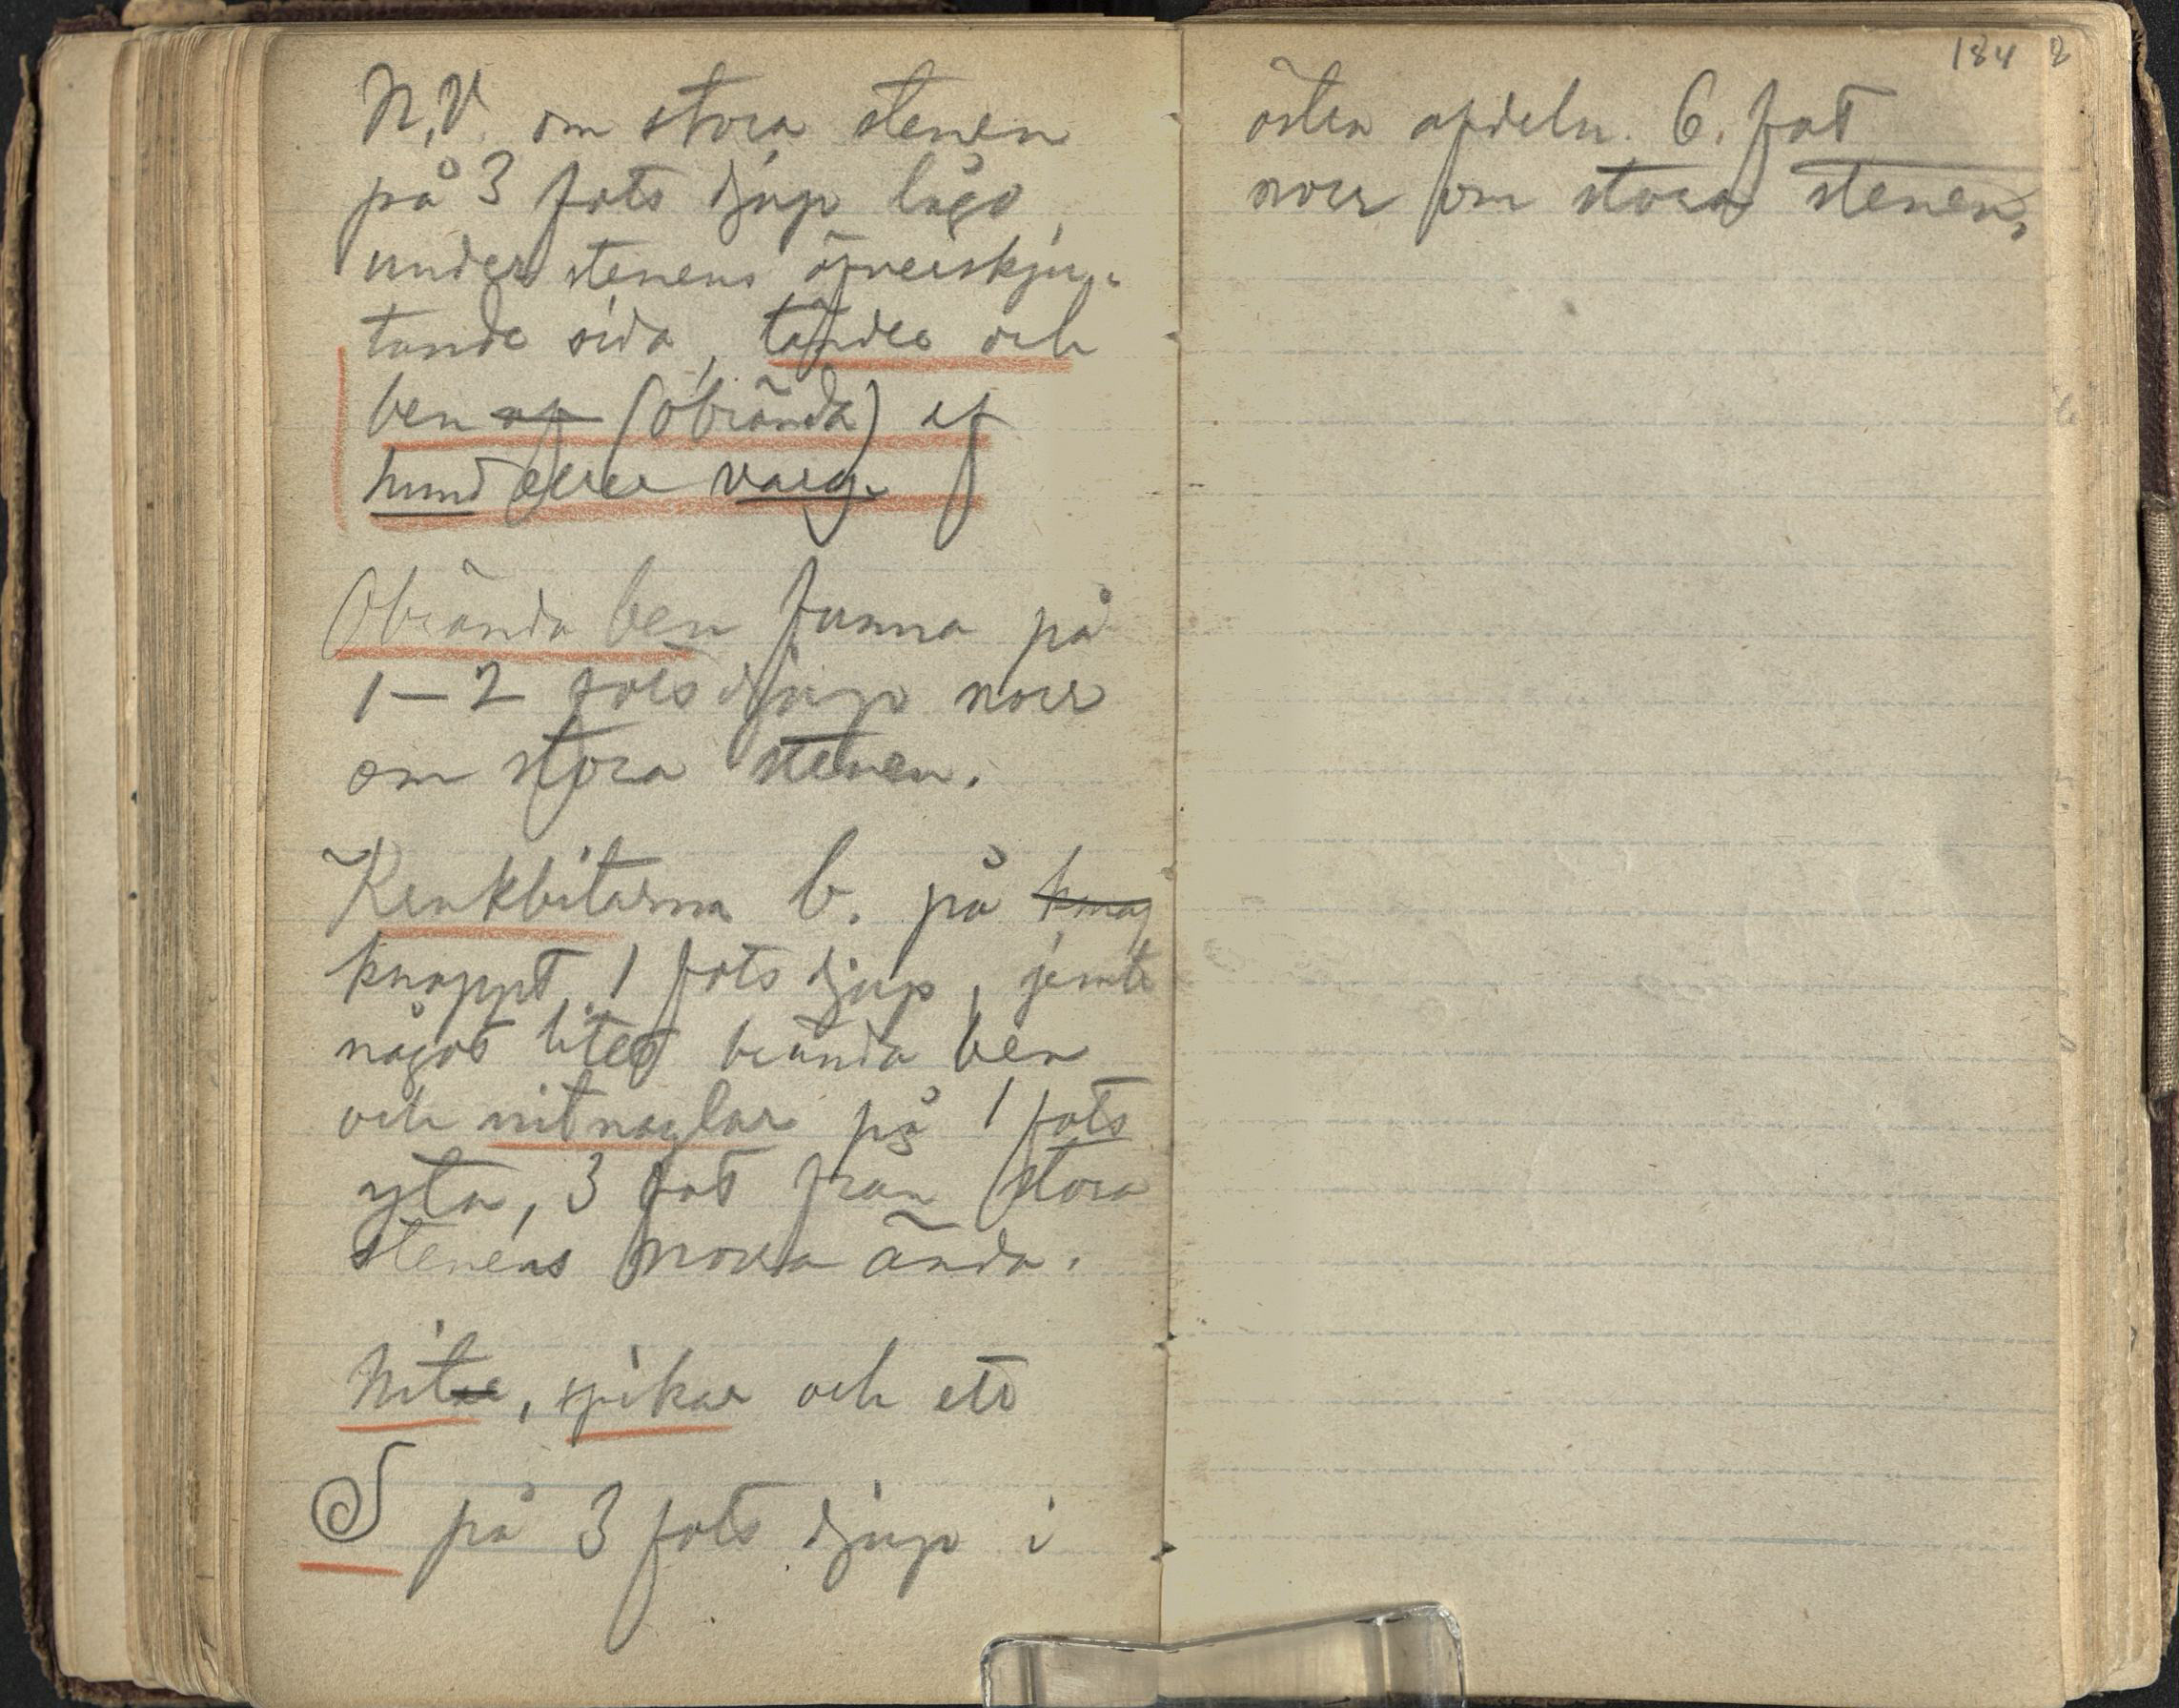 N.V. om stora stenen
på 3 fots djup lågo
under stenens öfverskju-
tande sida, tänder och
ben af (obrända) af
hund eller varg.
Obrända ben funna på
1–2 fots djup norr
om stora stenen.
Kenkbitarna b. på knap
knappt 1 fots djup, jemte
något litet brända ben
och nitnaglar på 1 fots
yta, 3 fot från stora
stenens norra ända.
Nitar, spikar och ett
S på 3 fots djup i
184
östra afdeln. 6. fot
norr om stora stenen,